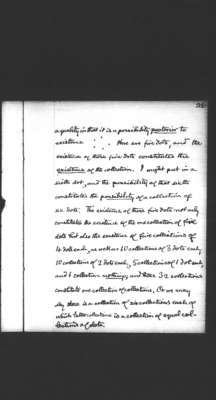 a quality in that it is a possibility posterior to
existence Here are five dots; and the
existence of these five dots constitutes the
existence of the collection. I might put in a
sixth dot, and the possibility of that sixth
constitutes the possibility of a collection of
six dots. The existence of these five dots not only
constitutes the existence of the one collection of five
dots but also the existence of five collections of
4 dots each, as well as 10 collections of 3 dots each,
10 collections of 2 dots each, 5 collections of 1 dot each,
and 1 collection nothing; and these 32 collections
constitute one collection of collections, Or we may
say there is a collection of six collections each of
which latter collections is a collection of equal col-
lections of dots.